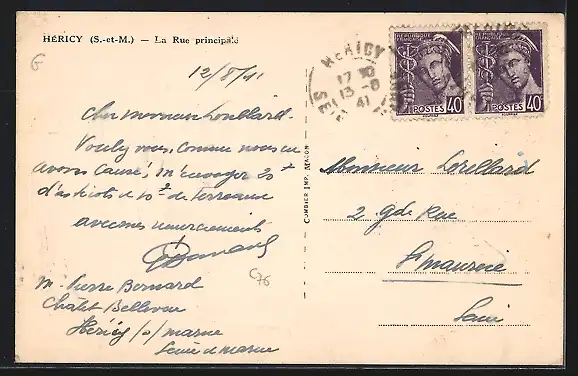 HÉRICY (S.-et-M.) — La Rue principale
G
12/8/41
Cher Monsieur Lorellard.
Voulez vous, comme nous en
avons causé, m'envoyer 20
d' de 10 de terreau
avec mes remerciements
Bernard
C76
M. Pierre Bernard
Châlet Bellevue
Héricy s/ marne
Seine et marne
COMBIER IMP. MACON
HÉRICY
17 30
13 -8
41
SEINE
REPUBLIQUE FRANÇAISE
POSTES 40c
REPUBLIQUE FRANÇAISE
POSTES 40c
Monsieur Lorellard
2 gde Rue
St maurice
Seine